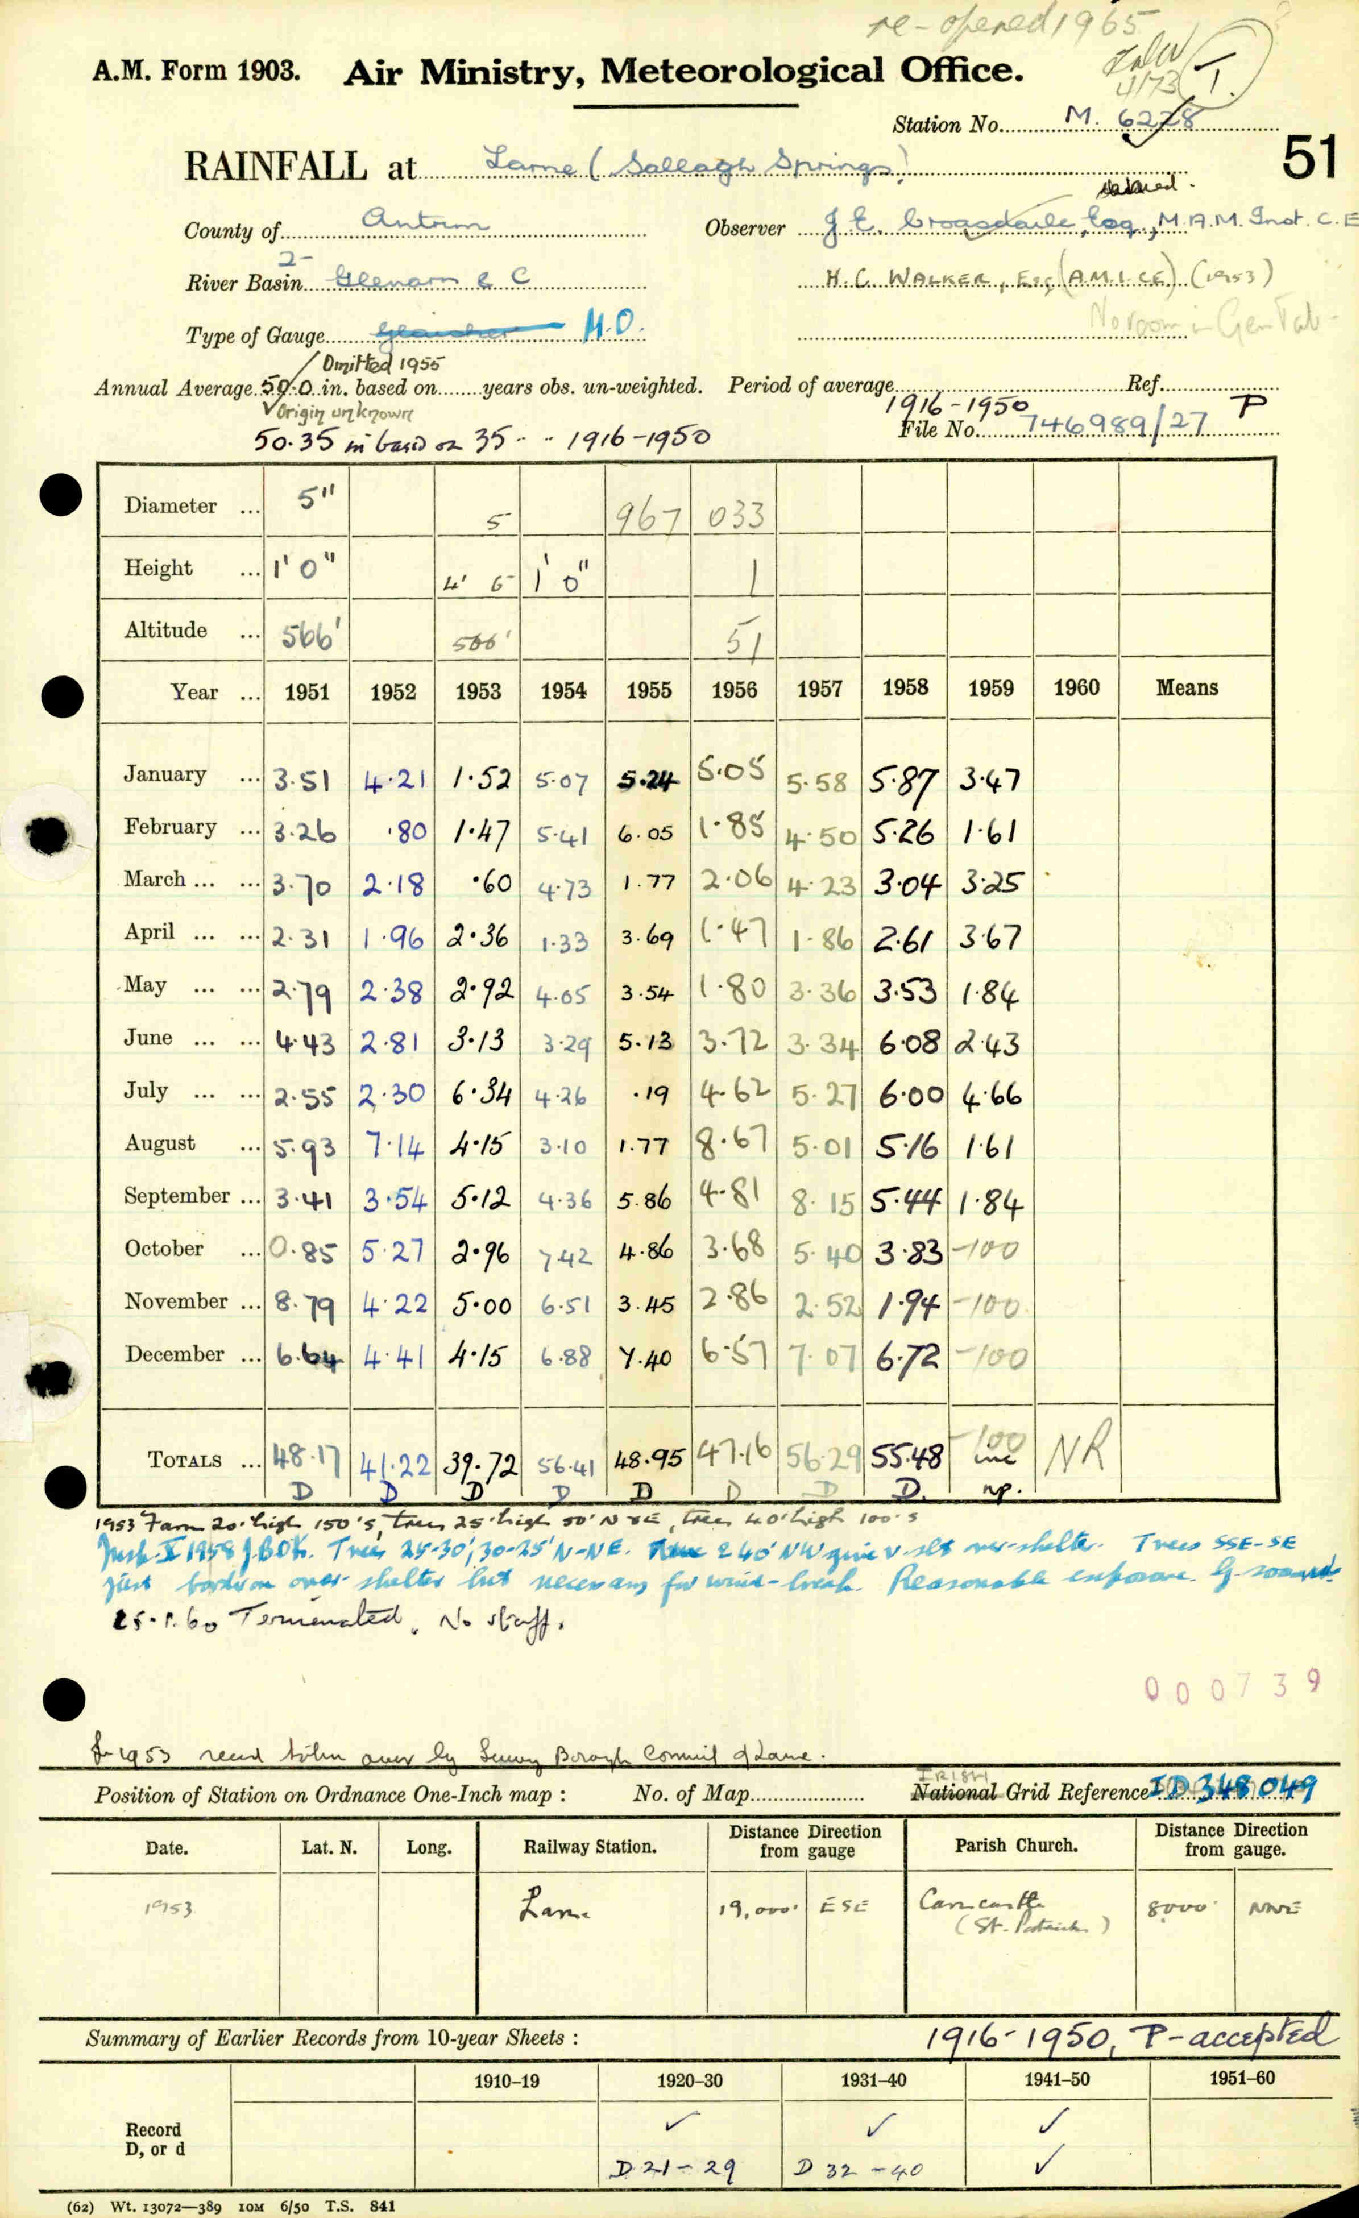 re-opened 1965
A.M. Form 1903. Air Ministry, Meteorological Office.
4173 T.
Station No. M. 6228
51
RAINFALL at Larne (Sallagh Springs)
County of Antrim Observer J.E. Croasdaile, Esq., M.A.M. Inst. C.E
River Basin 2- Glenarm & C H. C. WALKER, Esq (A.M.I.CE) (1953)
Type of Gauge Glaisher M.O. No room in Gen Tab-
Omitted 1955
Annual Average 50.0 in. based on years obs. un-weighted. Period of average Ref.
Origin unknown 1916-1950 P
50.35 in based on 35 - - 1916-1950 File No. 746989/27
Diameter ... 5" 5 967 033
Height ... 1' 0" 4' 6 1' 0" 1
Altitude ... 566' 566' 51
Year ... 1951 1952 1953 1954 1955 1956 1957 1958 1959 1960 Means
January ... 3.51 4.21 1.52 5.07 5.24 5.05 5.58 5.87 3.47
February ... 3.26 .80 1.47 5.41 6.05 1.85 4.50 5.26 1.61
March ... ... 3.70 2.18 .60 4.73 1.77 2.06 4.23 3.04 3.25
April ... ... 2.31 1.96 2.36 1.33 3.69 1.47 1.86 2.61 3.67
May ... ... 2.79 2.38 2.92 4.05 3.54 1.80 3.36 3.53 1.84
June ... ... 4.43 2.81 3.13 3.29 5.13 3.72 3.34 6.08 2.43
July ... ... 2.55 2.30 6.34 4.26 .19 4.62 5.27 6.00 4.66
August ... 5.93 7.14 4.15 3.10 1.77 8.67 5.01 5.16 1.61
September ... 3.41 3.54 5.12 4.36 5.86 4.81 8.15 5.44 1.84
October ... 0.85 5.27 2.96 7.42 4.86 3.68 5.40 3.83 -100
November ... 8.79 4.22 5.00 6.51 3.45 2.86 2.52 1.94 -100
December ... 6.64 4.41 4.15 6.88 7.40 6.57 7.07 6.72 -100
TOTALS ... 48.17 41.22 39.72 56.41 48.95 47.16 56.29 55.48 -100 inc NR
D D D D D D D D. np.
1953 Farm 20' high 150' S, trees 25' high 50' N & E, trees 40' high 100' S
Insp. X 1958 J.B.O'K. Trees 25-30', 30-25' N-NE. 240' NW give v. slt over-shelter. Trees SSE-SE
just border on over-shelter but necessary for wind-break. Reasonable exposure
25.1.60 Terminated. No staff.
000739
In 1953 record taken over by Borough Council of Larne.
Position of Station on Ordnance One-Inch map : No. of Map National IRISH Grid Reference ID 348049
Date. Lat. N. Long. Railway Station. Distance from Direction gauge Parish Church. Distance from Direction gauge.
1953 Larne 19,000' ESE Cairncastle (St. Patrick) 8000' NNE
Summary of Earlier Records from 10-year Sheets : 1916-1950, P-accepted
1910–19 1920–30 1931–40 1941–50 1951–60
Record ✓ ✓ ✓
D, or d D 21-29 D 32-40 ✓
(62) Wt. 13072—389 10M 6/50 T.S. 841